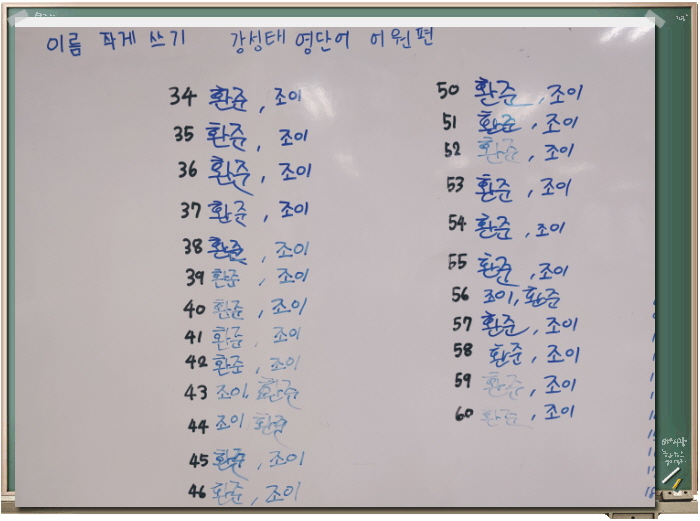 이름 작게 쓰기 강성태 영단어 어원편
34 환준, 조이
35 환준, 조이
36 환준, 조이
37 환준, 조이
38 환준, 조이
39 환준, 조이
40 환준, 조이
41 환준, 조이
42 환준, 조이
43 조이, 환준
44 조이 환준
45 환준, 조이
46 환준, 조이
50 환준, 조이
51 환준, 조이
52 환준, 조이
53 환준, 조이
54 환준, 조이
55 환준, 조이
56 조이, 환준
57 환준, 조이
58 환준, 조이
59 환준, 조이
60 환준, 조이